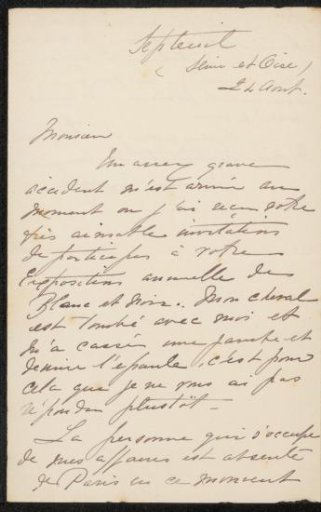 Septeuil
(Seine et Oise)
24 Aout.
Monsieur
Un assez grave
accident m'est arrivé au
moment ou j'ai reçu votre
très aimable invitations
de participer à votre
Exposition annuelle de
Blanc et Noir. Mon cheval
est tombé avec moi et
m'a cassé une jambe et
demire l'epaule, c'est pour
cela que je ne vous ai pas
répondu plustôt.
La personne qui s'occupe
de mes affaires est absente
de Paris en ce moment